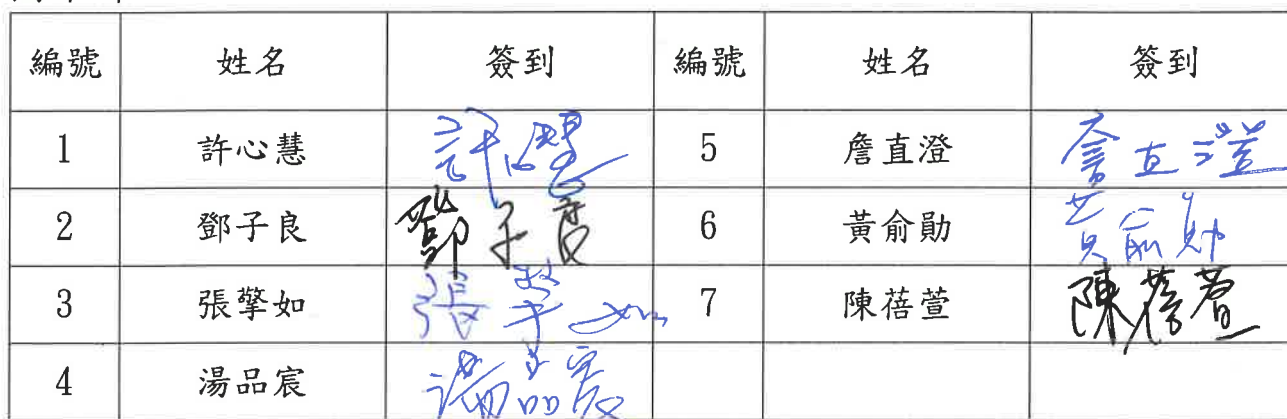 編號 姓名 簽到 編號 姓名 簽到
1 許心慧 許心慧 5 詹直澄 詹直澄
2 鄧子良 鄧子良 6 黃俞勛 黃俞勛
3 張擎如 張擎如 7 陳蓓萱 陳蓓萱
4 湯品宸 湯品宸